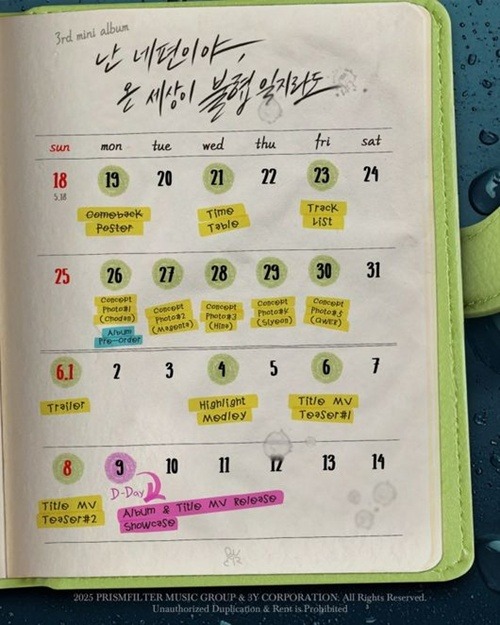 3rd mini album
난 네편이야,
온 세상이 불협일지라도
sun mon tue wed thu fri sat
18 19 20 21 22 23 24
5.18
Comeback Poster
Time Table
Track List
25 26 27 28 29 30 31
Concept Photo#1 (Chodan)
Album Pre-order
Concept Photo#2 (Magenta)
Concept Photo#3 (Hina)
Concept Photo#4 (Siyeon)
Concept Photo#5 (QWER)
6.1 2 3 4 5 6 7
Trailer
Highlight Medley
Title MV Teaser#1
8 9 10 11 12 13 14
Title MV Teaser#2
D-Day
Album & Title MV Release
Showcase
2025 PRISMFILTER MUSIC GROUP & 3Y CORPORATION. All Rights Reserved.
Unauthorized Duplication & Rent is Prohibited